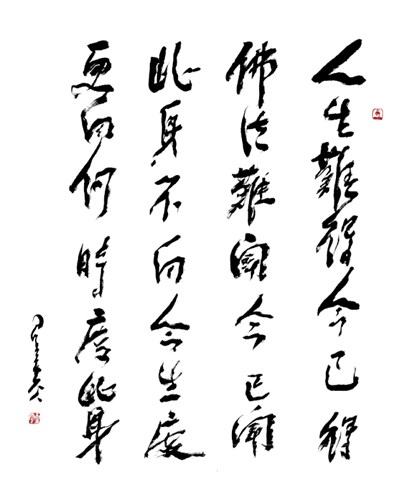 人生難得今已得
佛法難聞今已聞
此身不向今生度
更向何時度此身